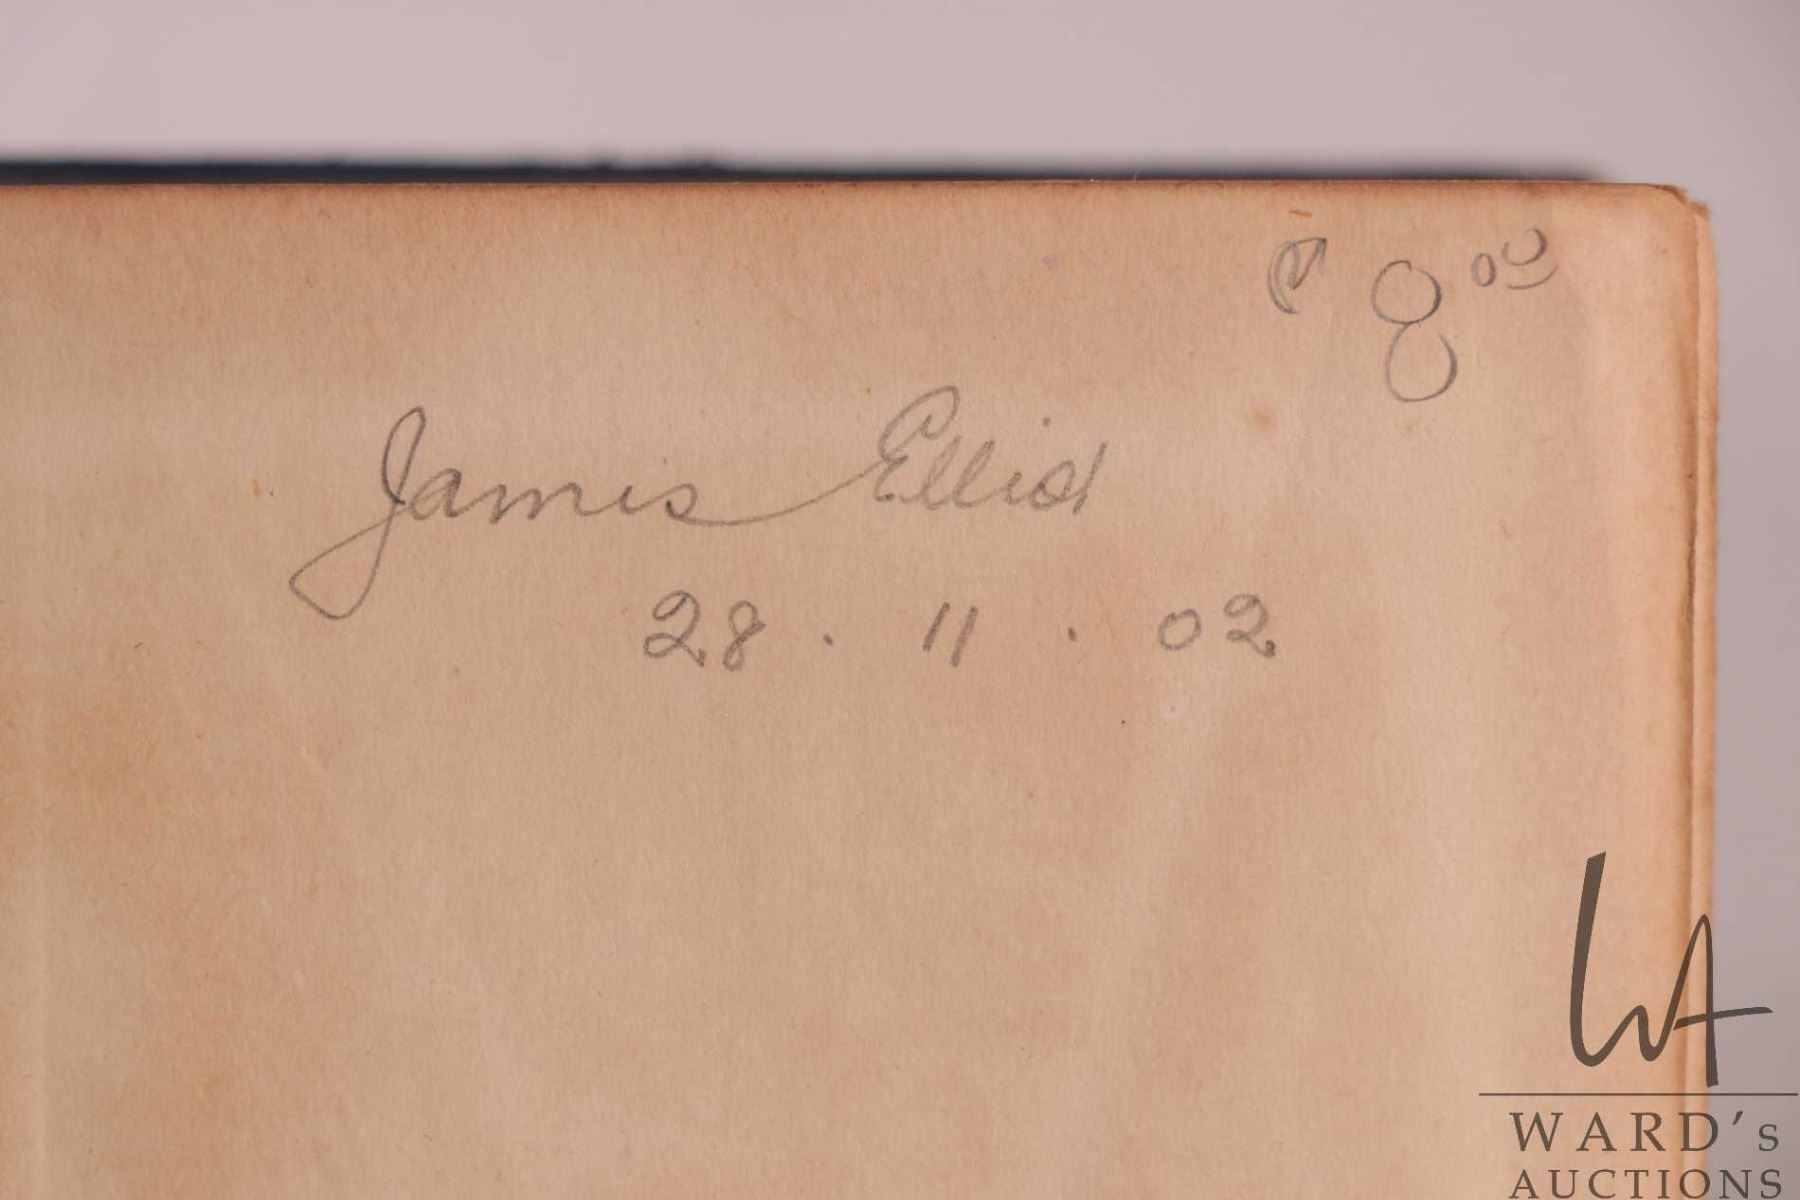 8 00
James Elliot
28 . 11 . 02
WA
WARD's
AUCTIONS